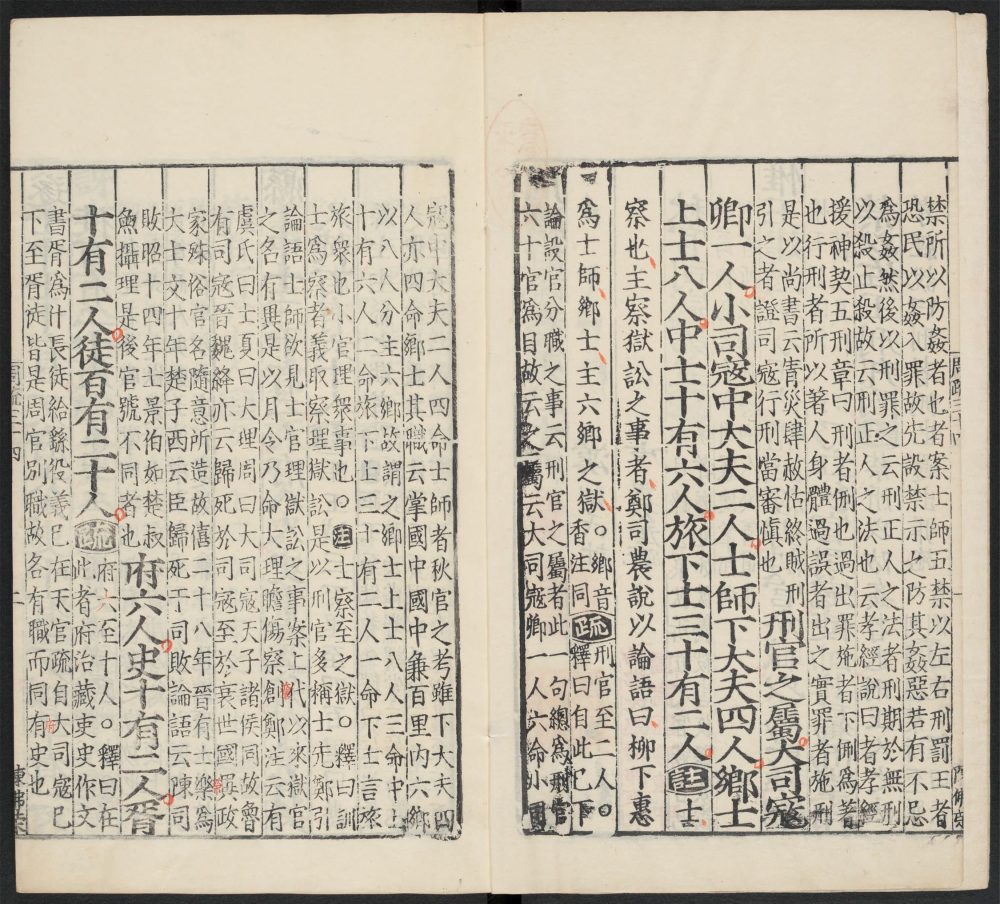 禁所以防姦者也者案士師五禁以左右刑罰王者
恐民以姦入罪故先設禁示之防其姦惡若有不忌
爲姦然後以刑罪之云刑正人之法者刑期於無刑
以殺止殺故云刑正人之法也云孝經說曰者孝經
援神契五刑章曰刑者侀也過出罪施者下侀爲著
也行刑者所以著人身體過誤者出之實罪者施刑
是以尚書云眚災肆赦怙終賊刑
引之者證司寇行刑當審愼也
刑官之屬大司寇
卿一人小司寇中大夫二人士師下大夫四人鄉士
上士八人中士十有六人旅下士三十有二人
註
士士
察也主察獄訟之事者鄭司農說以論語曰柳下惠
爲士師鄉士主六鄉之獄○鄉音
香注同
疏
刑官至二人○
釋曰自此已下
論設官分職之事云刑官之屬者此一句總爲刑官
六十官爲目故云之屬云大司寇卿一人六命小司
寇中大夫二人四命士師者秋官之考雖下大夫四
人亦四命鄉士其職云掌國中國中兼百里內六鄉
以八人分主六鄉故謂之鄉士上士八人三命中士
十有六人二命旅下士三十有二人一命下士言旅
旅衆也小官理衆事也○註士察至之獄○釋曰訓
士爲察者義取察理獄訟是以刑官多稱士先鄭引
論語士師欲見士官理獄訟之事案上代以來獄官
之名有異是以月令乃命大理瞻傷察創鄭注云有
虞氏曰士夏曰大理周曰大司寇天子諸侯同故魯
有司寇晉魏絳亦云歸死於司寇至於衰世國異政
家殊俗官名隨意所造故僖二十八年晉有士榮爲
大士文十年楚子西云臣歸死于司敗論語云陳司
敗昭十四年士景伯如楚叔
魚攝理是後官號不同者也
府六人史十有二人胥
十有二人徒百有二十人
疏
府六至十人○釋曰在
此者府治藏吏史作文
書胥爲什長徒給繇役義已在天官疏自大司寇已
下至胥徒皆是周官別職故名有職而同有府史也
周疏三十四
一
二